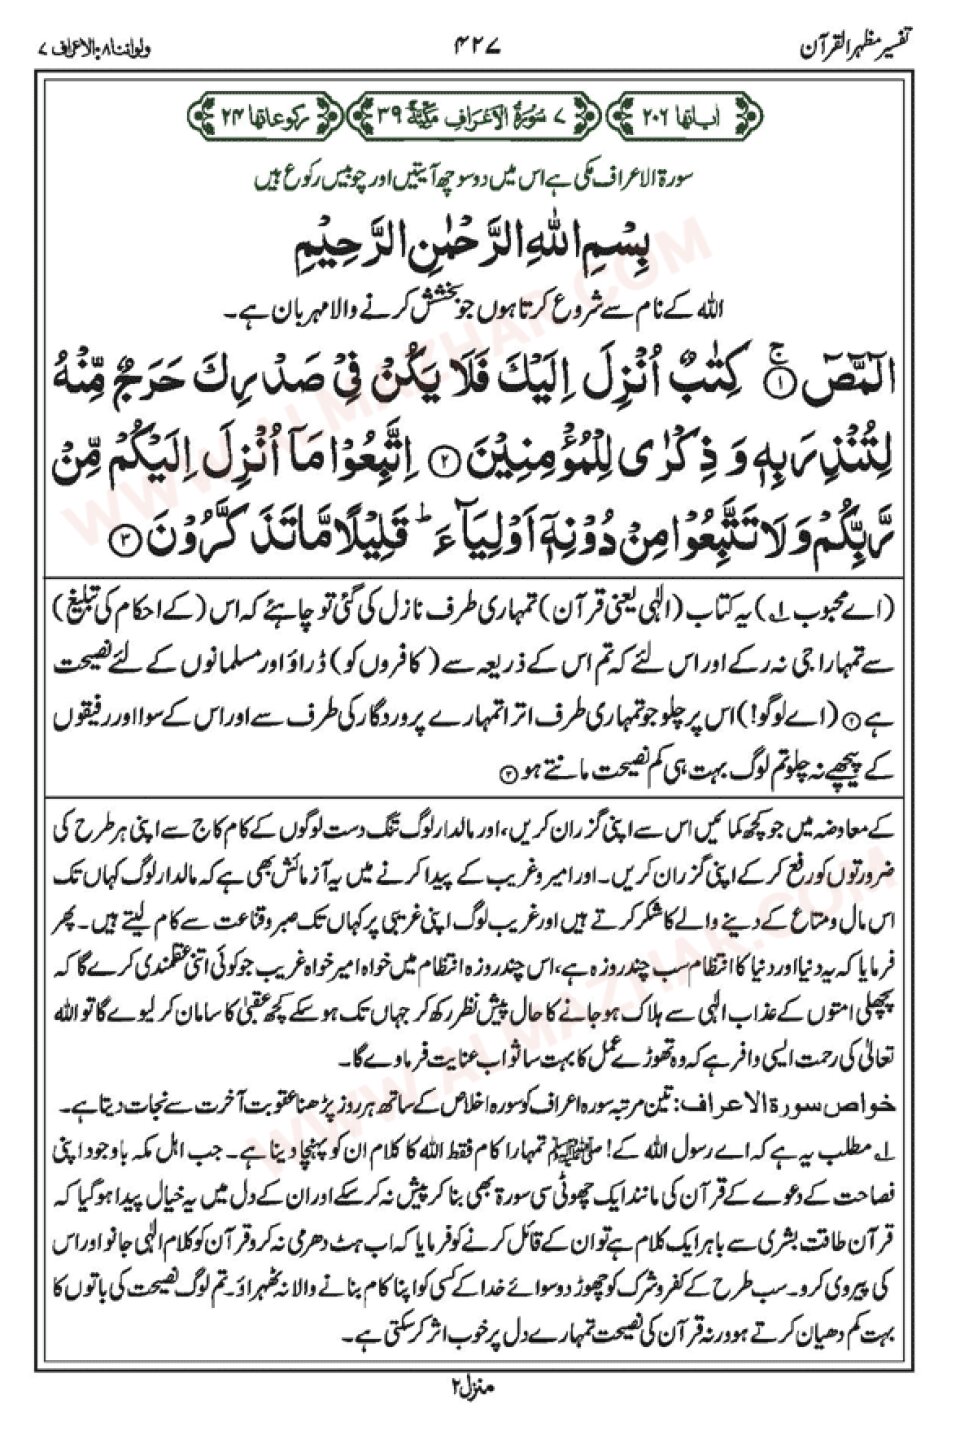 تفسیر مظہر القرآن ۴۲۷ ولواننا۸:الاعراف ۷
اٰیاتھا ۲۰۶ ۷ سُوۡرَۃُ الۡاَعۡرَافِ مَکِّیَّۃٌ ۳۹ رکوعاتھا ۲۴
سورۃ الاعراف مکی ہے اس میں دو سو چھ آیتیں اور چوبیس رکوع ہیں
بِسْمِ اللّٰهِ الرَّحْمٰنِ الرَّحِيْمِ
اللہ کے نام سے شروع کرتا ہوں جو بخشش کرنے والا مہربان ہے۔
الٓمّٓصٓ ۚ﴿۱﴾ كِتٰبٌ اُنْزِلَ اِلَيْكَ فَلَا يَكُنْ فِيْ صَدْرِكَ حَرَجٌ مِّنْهُ
لِتُنْذِرَ بِهٖ وَ ذِكْرٰى لِلْمُؤْمِنِيْنَ ﴿۲﴾ اِتَّبِعُوْا مَاۤ اُنْزِلَ اِلَيْكُمْ مِّنْ
رَّبِّكُمْ وَلَا تَتَّبِعُوْا مِنْ دُوْنِهٖۤ اَوْلِيَآءَ ؕ قَلِيْلًا مَّا تَذَكَّرُوْنَ ﴿۳﴾
(اے محبوب ۱) یہ کتاب (الٰہی یعنی قرآن) تمہاری طرف نازل کی گئی تو چاہئے کہ اس (کے احکام کی تبلیغ)
سے تمہارا جی نہ رکے اور اس لئے کہ تم اس کے ذریعہ سے (کافروں کو) ڈراؤ اور مسلمانوں کے لئے نصیحت
ہے ﴿۲﴾ (اے لوگو!) اس پر چلو جو تمہاری طرف اترا تمہارے پروردگار کی طرف سے اور اس کے سوا اور رفیقوں
کے پیچھے نہ چلو تم لوگ بہت ہی کم نصیحت مانتے ہو ﴿۳﴾
کے معاوضہ میں جو کچھ کمائیں اس سے اپنی گزران کریں، اور مالدار لوگ تنگ دست لوگوں کے کام کاج سے اپنی ہر طرح کی
ضرورتوں کو رفع کر کے اپنی گزران کریں۔ اور امیر و غریب کے پیدا کرنے میں یہ آزمائش بھی ہے کہ مالدار لوگ کہاں تک
اس مال و متاع کے دینے والے کا شکر کرتے ہیں اور غریب لوگ اپنی غریبی پر کہاں تک صبر و قناعت سے کام لیتے ہیں۔ پھر
فرمایا کہ یہ دنیا اور دنیا کا انتظام سب چند روزہ ہے، اس چند روزہ انتظام میں خواہ امیر خواہ غریب جو کوئی اتنی عقلمندی کرے گا کہ
پچھلی امتوں کے عذاب الٰہی سے ہلاک ہو جانے کا حال پیش نظر رکھ کر جہاں تک ہو سکے کچھ عقبیٰ کا سامان کر لیوے گا تو اللہ
تعالیٰ کی رحمت ایسی وافر ہے کہ وہ تھوڑے عمل کا بہت سا ثواب عنایت فرماوے گا۔
خواص سورۃ الاعراف: تین مرتبہ سورہ اعراف کو سورہ اخلاص کے ساتھ ہر روز پڑھنا عقوبت آخرت سے نجات دیتا ہے۔
۱ مطلب یہ ہے کہ اے رسول اللہ کے! ﷺ تمہارا کام فقط اللہ کا کلام ان کو پہنچا دینا ہے۔ جب اہل مکہ باوجود اپنی
فصاحت کے دعوے کے قرآن کی مانند ایک چھوٹی سی سورۃ بھی بنا کر پیش نہ کر سکے اور ان کے دل میں یہ خیال پیدا ہو گیا کہ
قرآن طاقت بشری سے باہر ایک کلام ہے تو ان کے قائل کرنے کو فرمایا کہ اب ہٹ دھرمی نہ کرو قرآن کو کلام الٰہی جانو اور اس
کی پیروی کرو۔ سب طرح کے کفر و شرک کو چھوڑ دو سوائے خدا کے کسی کو اپنا کام بنانے والا نہ ٹھہراؤ۔ تم لوگ نصیحت کی باتوں کا
بہت کم دھیان کرتے ہو ورنہ قرآن کی نصیحت تمہارے دل پر خوب اثر کر سکتی ہے۔
منزل۲
WWW.ALMAZHAR.COM
WWW.ALMAZHAR.COM